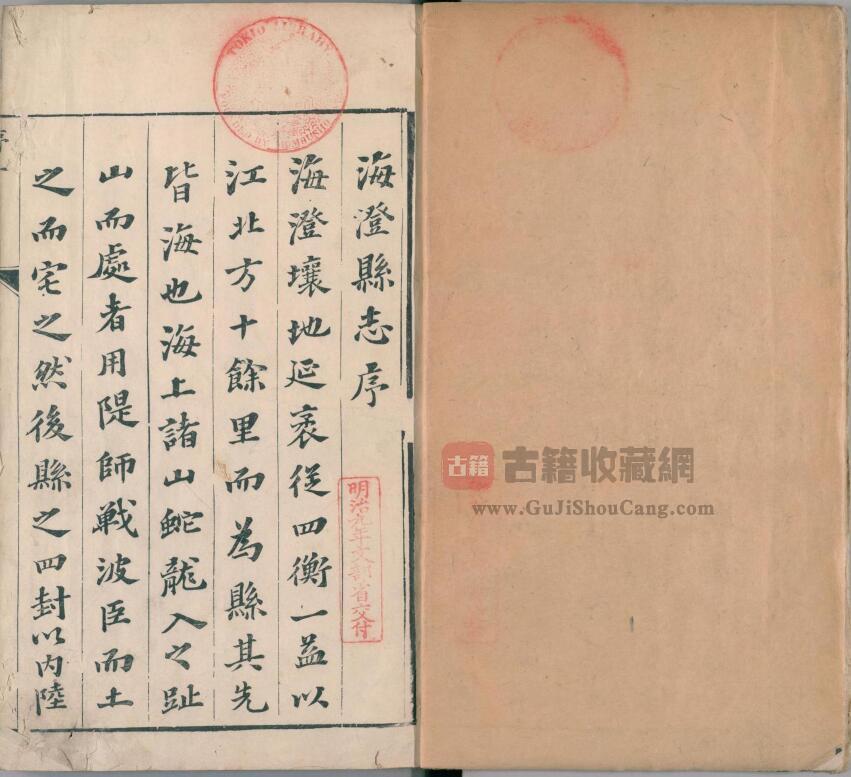 海澄縣志序
海澄壤地延袤從四衡一益以
江北方十餘里而為縣其先
皆海也海上諸山蛇龍入之趾
山而處者用隄師戰波臣而土
之而宅之然後縣之四封以內陸
序
明治九年文部省交付
TOKIO LIBRARY
古籍
古籍收藏網
www.GuJiShouCang.com